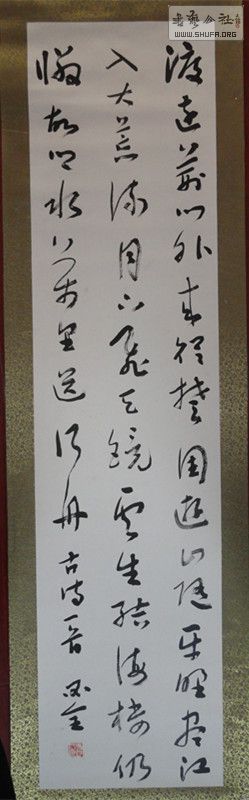 书艺公社
WWW.SHUFA.ORG
渡远荆门外来从楚国游山随平野尽江
入大荒流月下飞天镜云生结海楼仍
怜故乡水万里送行舟 古诗一首